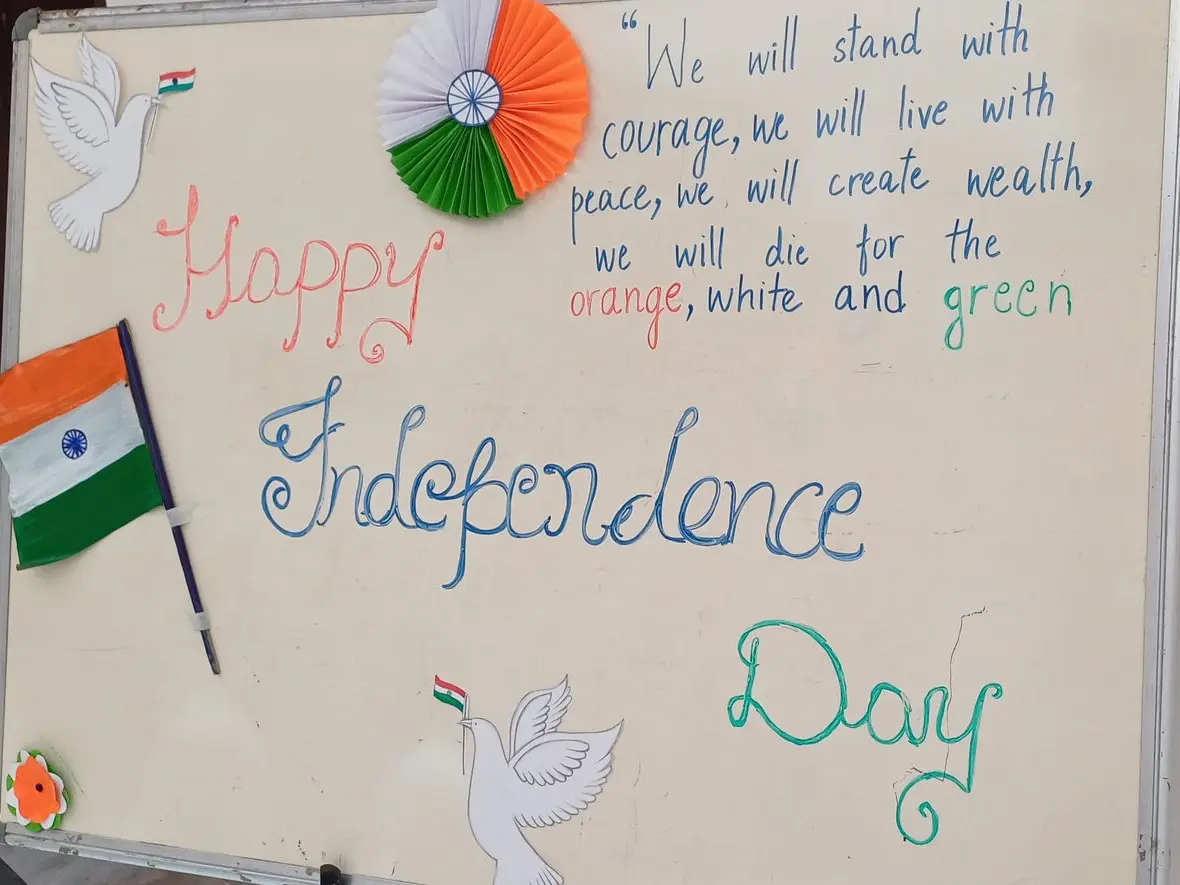 “We will stand with
courage, we will live with
peace, we will create wealth,
we will die for the
orange, white and green
Happy
Independence
Day